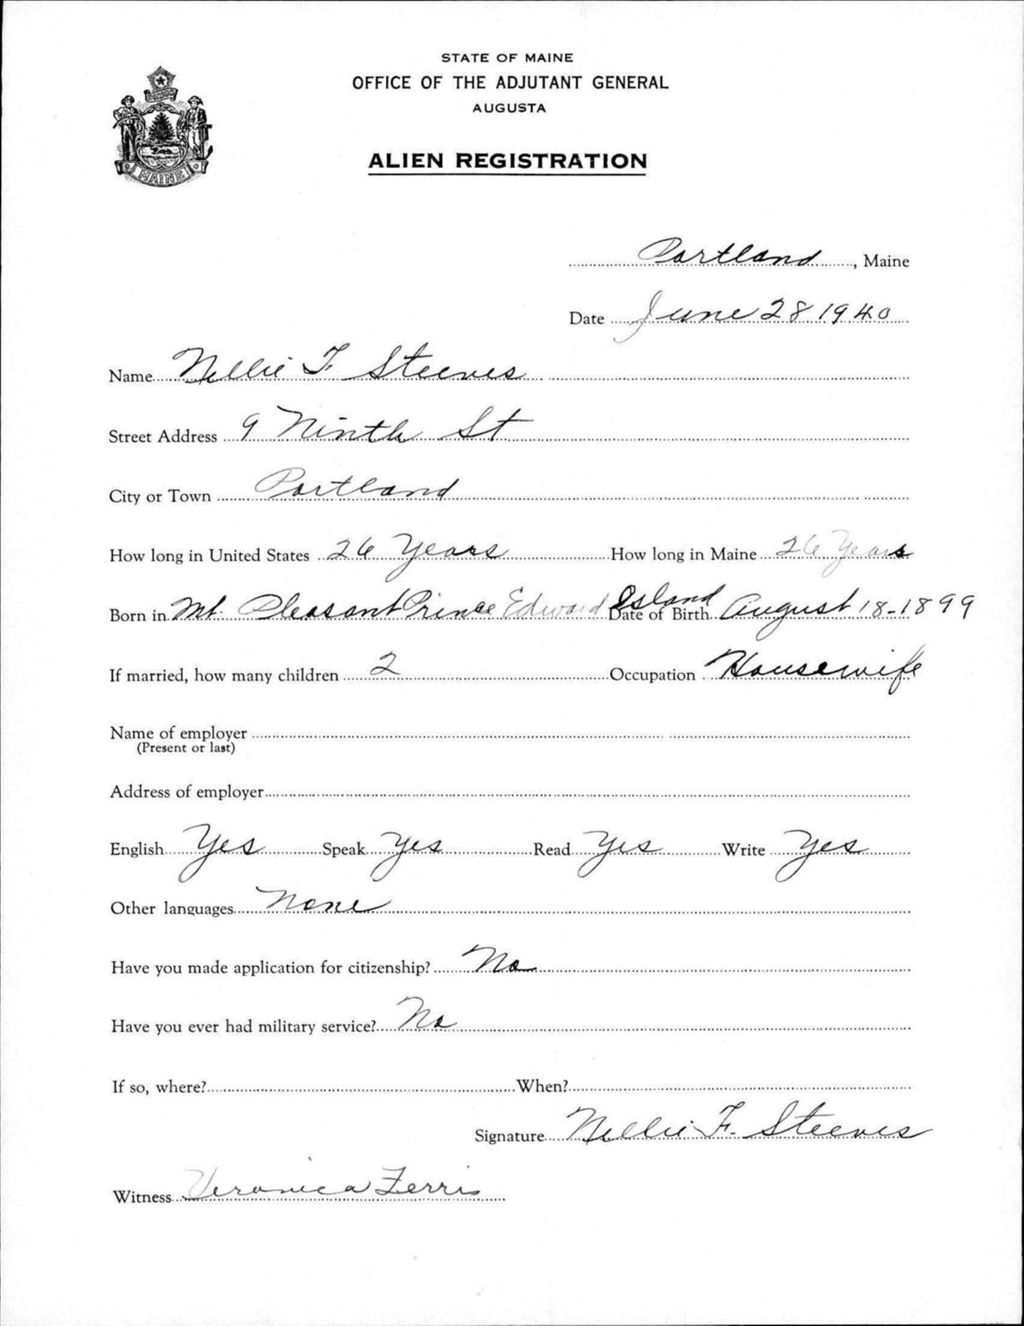 STATE OF MAINE
OFFICE OF THE ADJUTANT GENERAL
AUGUSTA
ALIEN REGISTRATION
MAINE
Portland, Maine
Date June 28 1940
Name Nellie F. Steeves
Street Address 9 Ninth St
City or Town Portland
How long in United States 26 Years How long in Maine 26 Years
Born in Mt. Pleasant Prince Edward Island Date of Birth August 18-1899
If married, how many children 2 Occupation Housewife
Name of employer
(Present or last)
Address of employer
English Yes Speak Yes Read Yes Write Yes
Other languages None
Have you made application for citizenship? No
Have you ever had military service? No
If so, where? When?
Signature Nellie F. Steeves
Witness Veronica Ferris